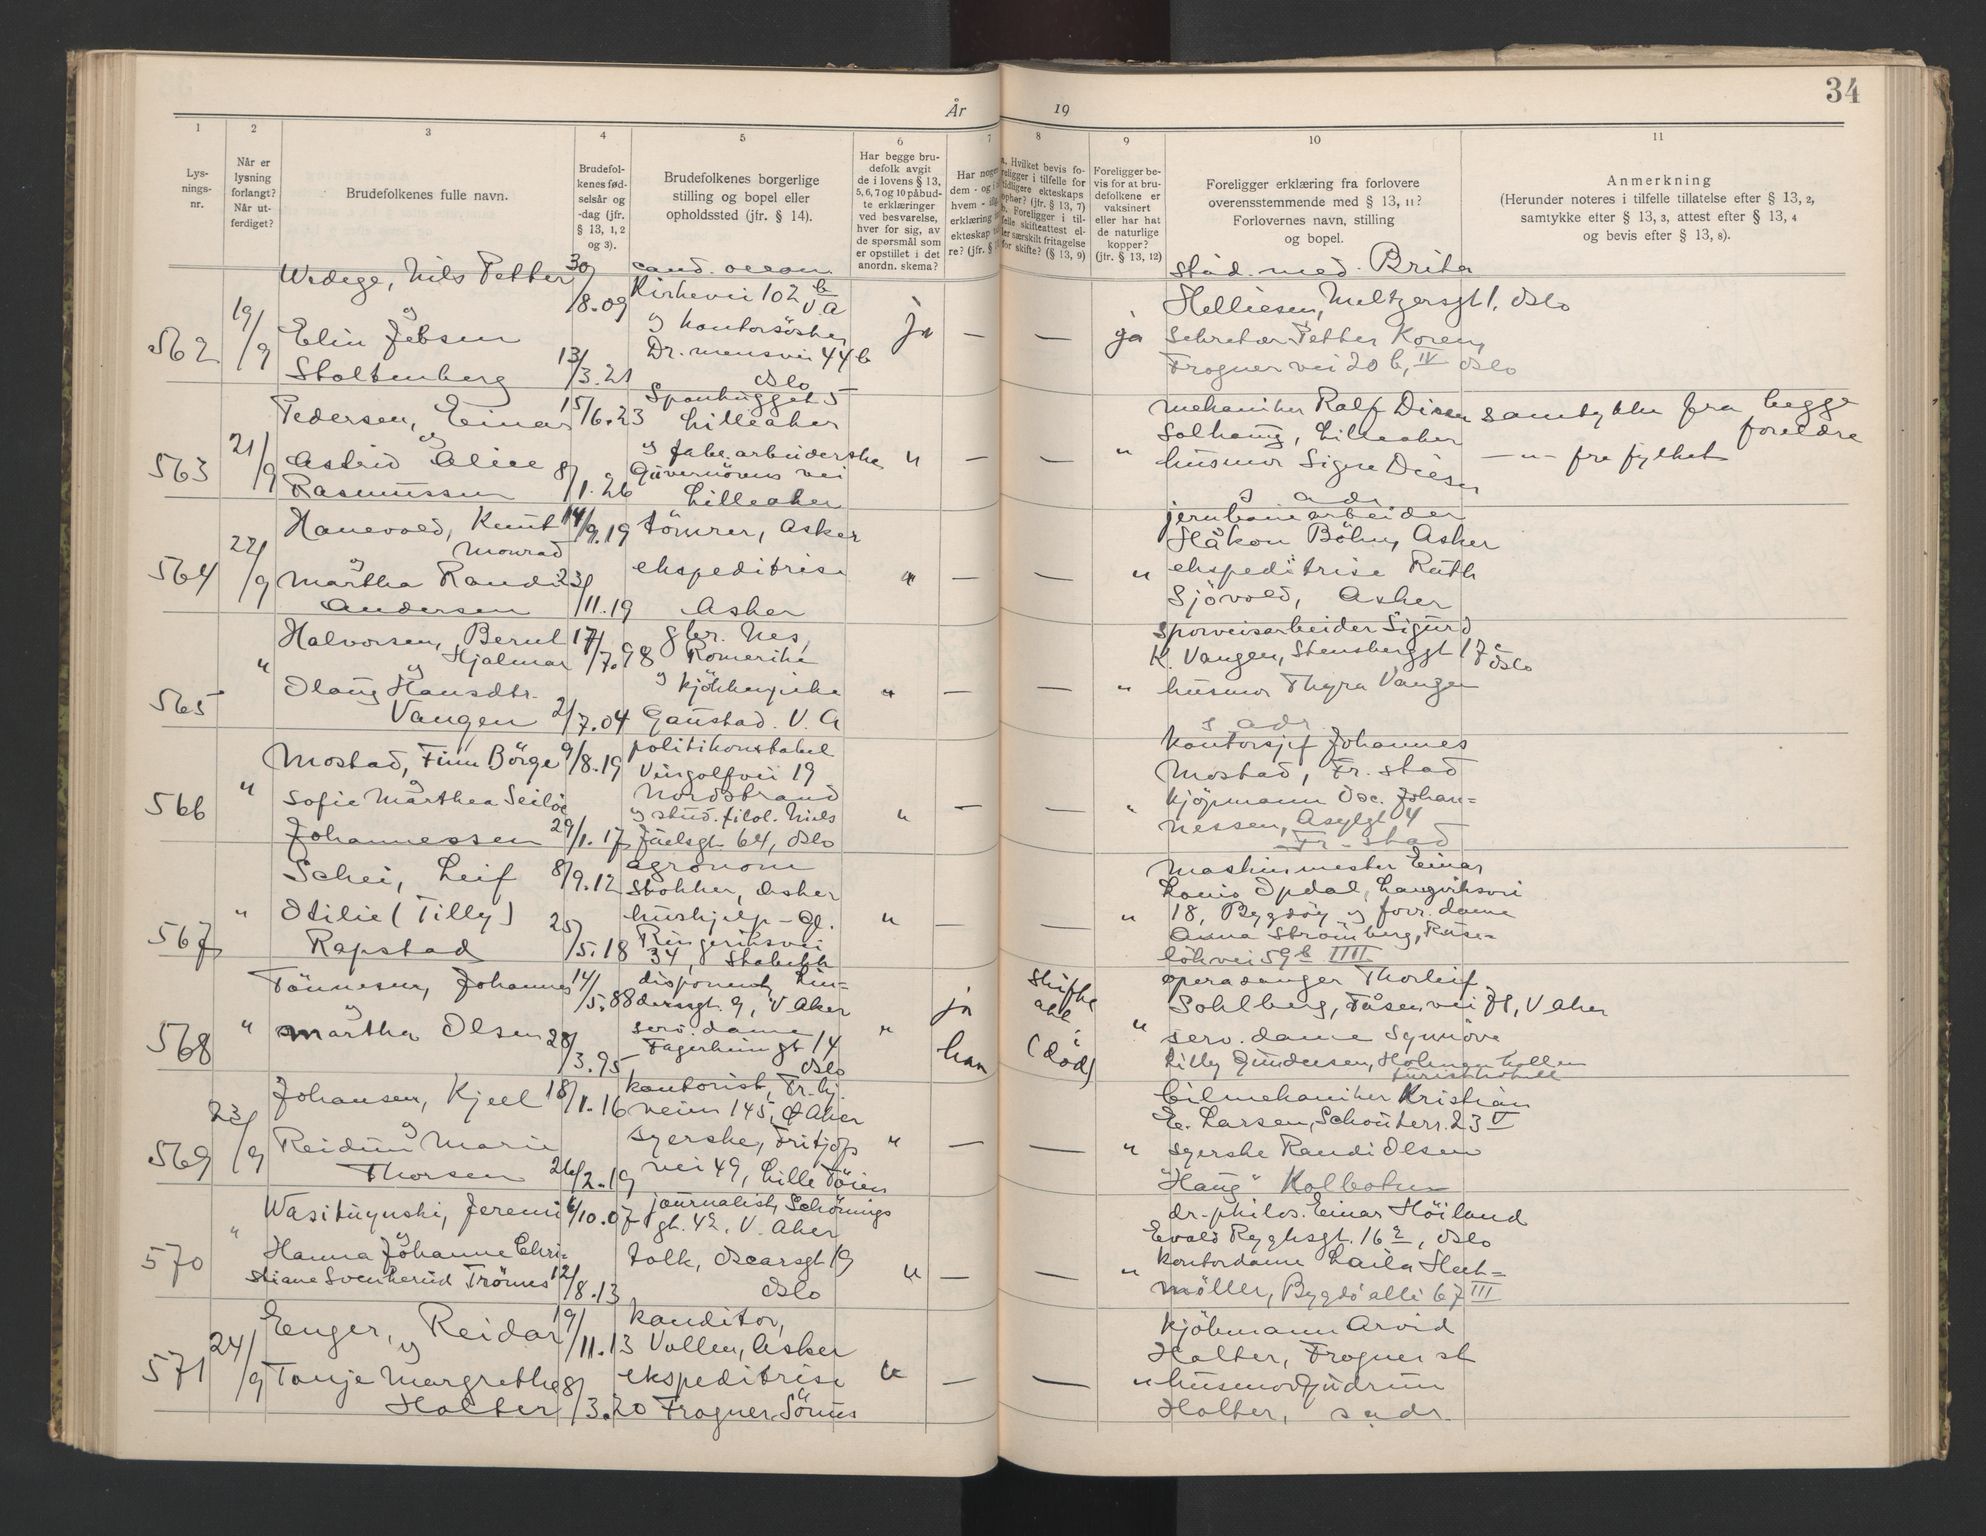 34
År
19
1
2
3
4
5
6
7
8
9
10
11
Lys-
nings-
nr.
Når er
lysning
forlangt?
Når ut-
ferdiget?
Brudefolkenes fulle navn.
Brudefol-
kenes fød-
selsår og
-dag (jfr.
§ 13, 1, 2
og 3).
Brudefolkenes borgerlige
stilling og bopel eller
opholdssted (jfr. § 14).
Har begge bru-
defolk avgit
de i lovens § 13,
5, 6, 7 og 10 påbud-
te erklæringer
ved besvarelse,
hver for sig, av
de spørsmål som
er opstillet i det
anordn. skema?
Har noge
dem - og i
hvem -
erklæring
ekteskap
re? (jfr. §
a. Hvilket bevis fo-
religger i tilfelle for
tidligere ekteskaps
ophør? (jfr. § 13, 7)
b. Foreligger i til-
felle skifteattest el-
ler særskilt fritagelse
for skifte? (§ 13, 9)
Foreligger be-
vis for at bru-
defolkene er
vaksinert
eller har hat
de naturlige
kopper?
(jfr. § 13, 12)
Foreligger erklæring fra forlovere
overensstemmende med § 13, 11?
Forlovernes navn, stilling
og bopel.
Anmerkning
(Herunder noteres i tilfelle tillatelse efter § 13, 2,
samtykke etter § 13, 3, attest efter § 13, 4
og bevis efter § 13, 8).
562
19/9
Wedege, Nils Petter
og
Elin Jebsen
Stoltenberg
30/8.09
13/3.21
cand. oecon.
Kirkevei 102 b
V. A
og kontorsöster
Dr.mensvei 44 b
Oslo
ja
—
—
ja
stud. med. Brita
Helliesen, Meltzersgt 1, Oslo
Sekretær Petter Koren,
Frognervei 20 b, IV Oslo
563
21/9
Pedersen, Einar
og
Astrid Alice
Rasmussen
15/6.23
8/1.26
Sponhugget 5
Lilleaker
og fabr.arbeiderske
Guvernörens vei
Lilleaker
"
—
—
"
mekaniker Ralf Disen
Solhaug, Lilleaker
husmor Signe Disen
s adr
samtykke fra begge
foreldre
—"— fra fylket
564
22/9
Hanevold, Knut
Monrad
og
Märtha Randi
Andersen
14/9.19
23/11.19
tömrer, Asker
ekspeditrise
Asker
"
—
—
"
jernbanearbeider
Håkon Böhn, Asker
ekspeditrise Ruth
Sjövold, Asker
565
"
Halvorsen, Bernt
Hjalmar
og
Olaug Hansdtr.
Vangen
17/7.98
2/7.04
gbr. Nes,
Romerike
og kjökkenpike
Gaustad. V. A
"
—
—
"
sporveisarbeider Sigurd
K. Vangen, Stensberggt 17 c
Oslo
husmor Thyra Vangen
s adr
566
"
Mostad, Finn Börge
og
Sofie Märthea Seilöe
Johannessen
9/8.19
29/1.17
politikonstabel
Vingolfvei 19
Nordstrand
og stud. filol. Niels
Juelsgt 64, Oslo
"
—
—
"
Kontorsjef Johannes
Mostad, Fr. stad
kjöpmann Osc. Johan=
nessen, Asylgt 4
Fr. stad
567
"
Schei, Leif
Otilie (Tilly)
Rapstad
8/9.12
25/5.18
agronom
Stokker, Asker
hushjelp - Gl.
Ringeriksvei
34, Stabekk
"
—
—
"
Maskinmester Einar
Louis Opdal, Langviksvei
18, Bygdöy og forr. dame
Anna Strömberg, Ruse=
lökvei 59 b IIII
568
"
Tönnesen, Johannes
og
Märtha Olsen
14/5.88
28/3.95
disponent, Lin-
derssgt 9, V Aker
serv. dame
Fagerheimgt 14
Oslo
"
ja
han
skifte
att.
(död)
"
operasanger Thorleif
Sohlberg, Tåsenvei 71, V Aker
serv. dame Synnöve
Lilly Gundersen, Holmenkollen
turisthotell
569
23/9
Johansen, Kjell
og
Reidun Marie
Thorsen
18/1.16
26/2.19
kontorist, Tr.hj.
veien 145, Ø Aker
syerske, Fritjofs
vei 49, Lille Töien
"
—
—
"
bilmekaniker Kristian
E. Larsen, Schouterr. 23 V
syerske Randi Olsen
"Haug" Kolbotn
570
"
Wasituynski, Jeremi
og
Hanna Johanne Chri=
stiane Svenkerud Trömes
6/10.07
12/8.13
journalist, Schönings
gt. 42, V. Aker
tolk, Oscarsgt 19
Oslo
"
—
—
"
dr. philos. Einar Höiland
Evald Ryghsgt. 16 2, Oslo
kontordame Laila Hect=
möller, Bygdö alle 67 III
571
24/9
Enger, Reidar
og
Tonje Margrethe
Holter
19/11.13
8/3.20
konditor,
Vollen, Asker
ekspeditrise
Frogner, Sörum
"
—
—
"
Kjöbmann Arvid
Holter, Frogner st
husmor Gudrun
Holter, s adr.